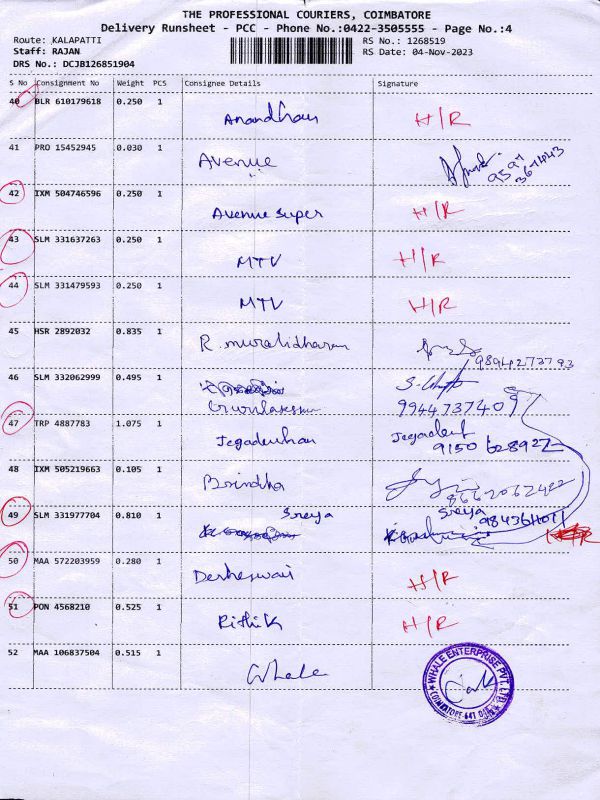 THE PROFESSIONAL COURIERS, COIMBATORE
Delivery Runsheet - PCC - Phone No.:0422-3505555 - Page No.:4
Route: KALAPATTI
RS No.: 1268519
Staff: RAJAN
RS Date: 04-Nov-2023
DRS No.: DCJB126851904
S No Consignment No Weight PCS Consignee Details Signature
40 BLR 610179618 0.250 1 Anandhan H/R
41 PRO 15452945 0.030 1 Avenue
42 IXM 504746596 0.250 1 Avenue super H/R
43 SLM 331637263 0.250 1 MTV H/R
44 SLM 331479593 0.250 1 MTV H/R
45 HSR 2892032 0.835 1 R. muralidharan 9894273793
46 SLM 332062999 0.495 1 9944737409
47 TRP 4887783 1.075 1 Jegadeeshan Jegadeesh 9150628922
48 IXM 505219663 0.105 1 Brindha 8662062422
49 SLM 331977704 0.810 1 Sreya Sreya
50 MAA 572203959 0.280 1 H/R
51 PON 4568210 0.525 1 Rithik H/R
52 MAA 106837504 0.515 1 Whale
WHALE ENTERPRISE PVT. LTD
COIMBATORE-641